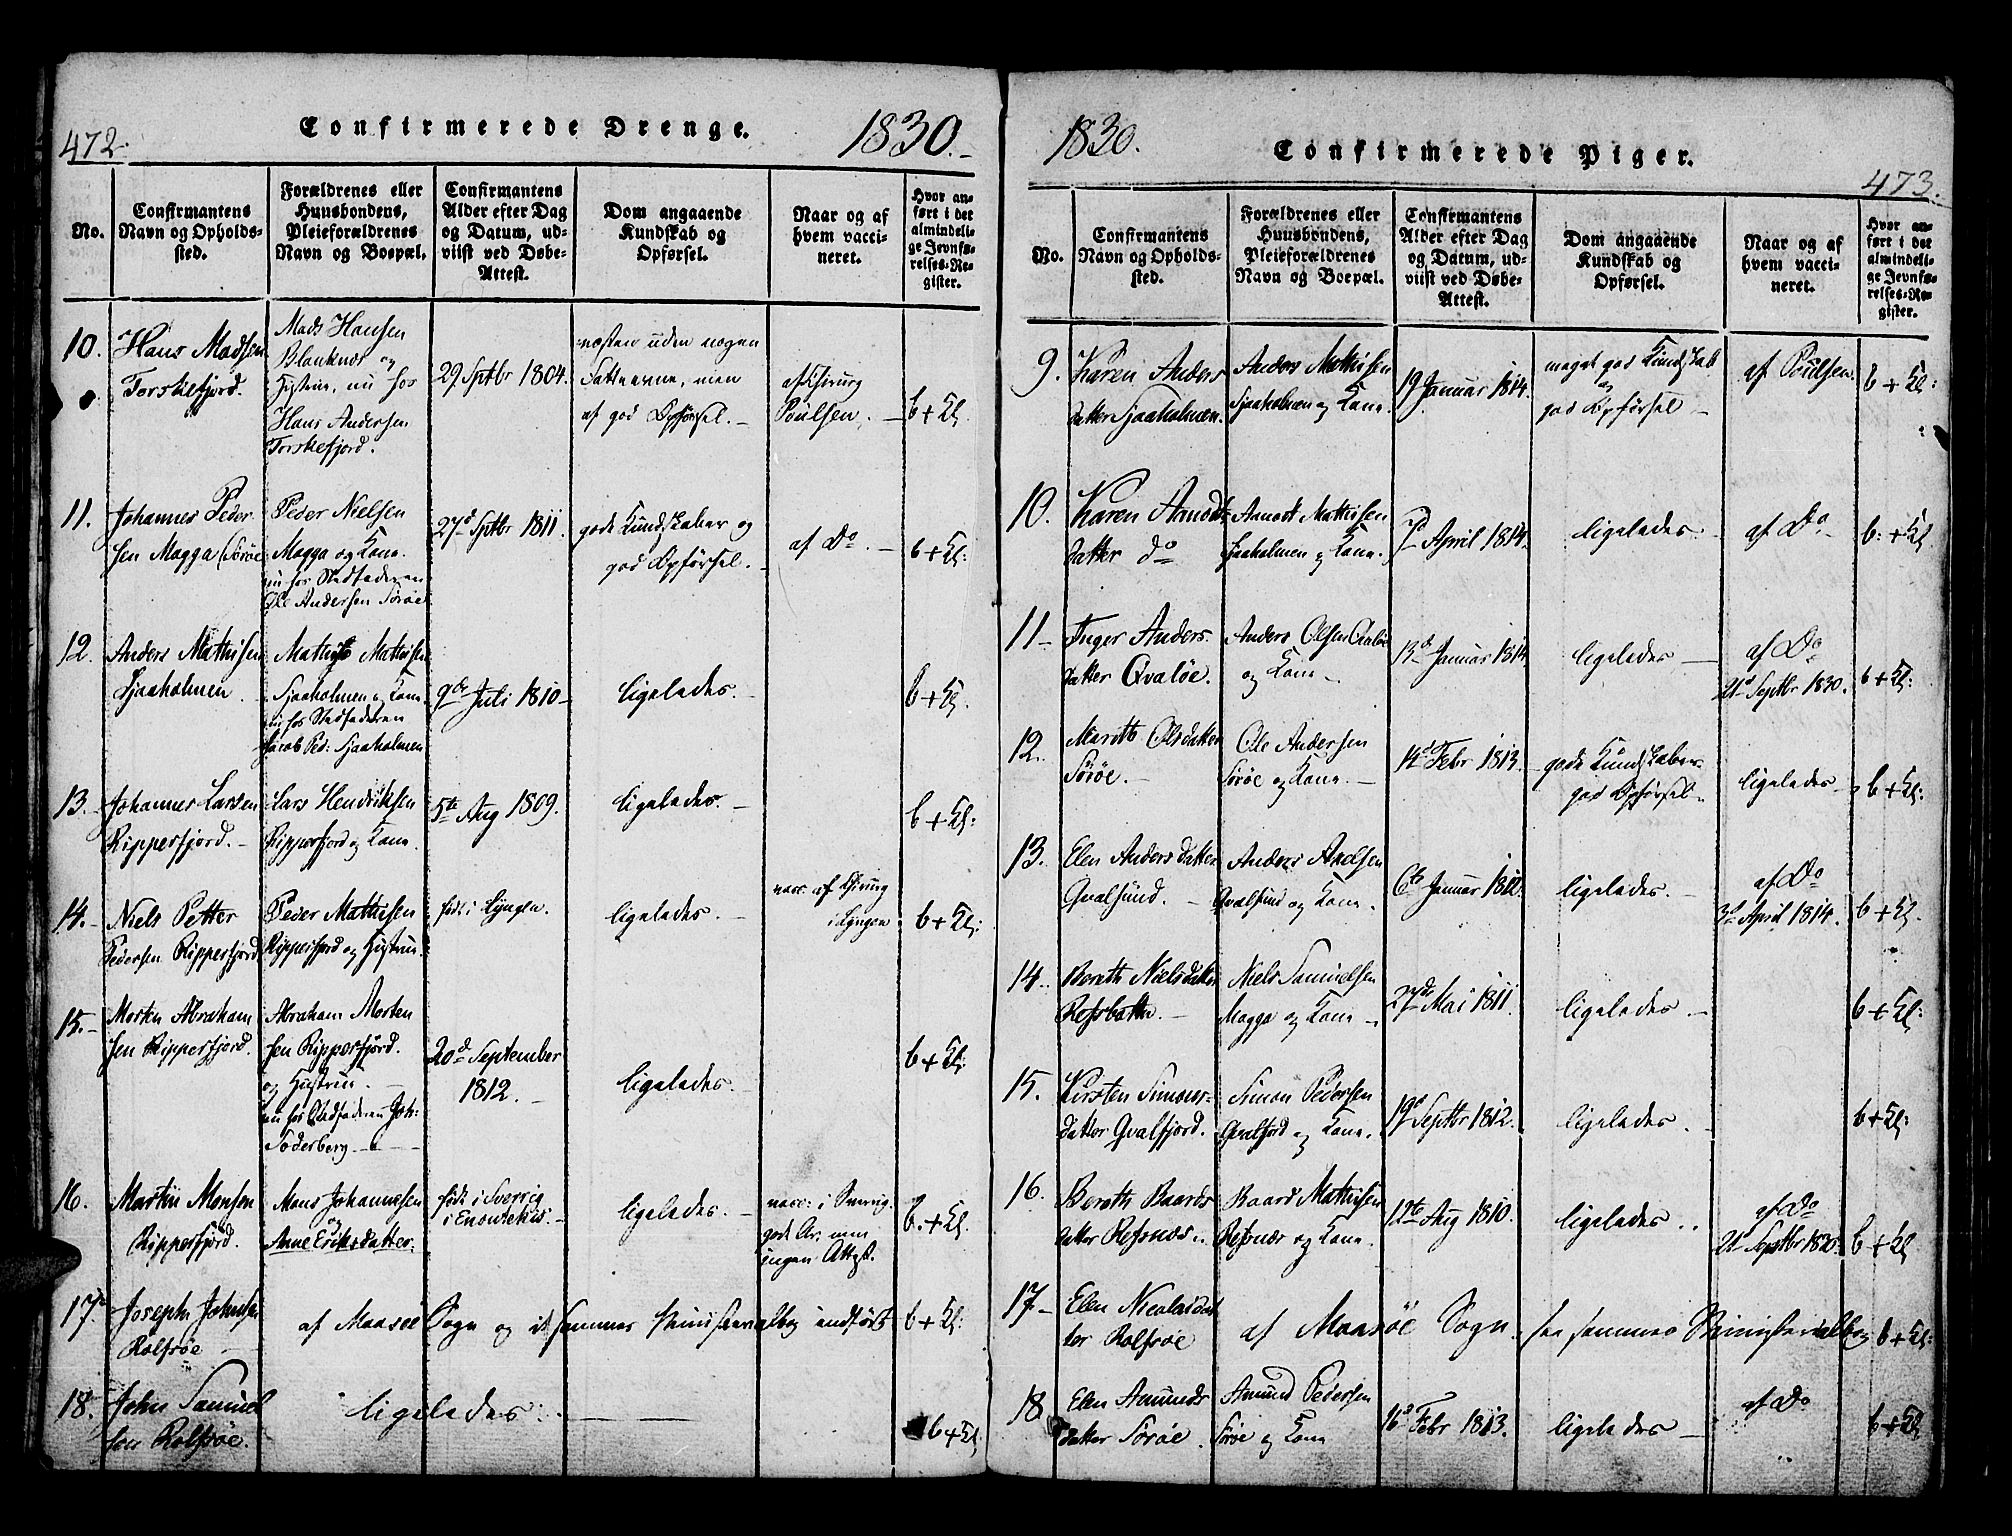 472.
Confirmerede Drenge.
1830.
No.
Confirmantens
Navn og Opholds-
sted.
Forældrenes eller
Huusbondens,
Pleieforældrenes
Navn og Boepæl.
Confirmantens
Alder efter Dag
og Datum, ud-
viist ved Døbe-
Attest.
Dom angaaende
Kundskab og
Opførsel.
Naar og af
hvem vacci-
neret.
Hvor an-
ført i det
almindeli-
ge Jevnfø-
relses-Re-
gister.
10.
Hans Madsen
Torskefjord.
Mads Hansen
og
Hustrue, nu hos
Hans Andersen
Torskefjord.
29 Sptbr 1804.
næsten uden nogen
men
af god Opførsel.
af Chirurg
Poulsen.
11.
Johannes Peder-
sen Magga Sørøe
Peder Nielsen
Magga og Kone
nu hos Stedfaderen
Ole Andersen Sørøe
27d Sptbr 1811.
gode Kundskaber og
god Opførsel.
af Do.
12.
Anders Mathisen
Sjaaholmen
Mathis Mathisen
Sjaaholmen og Kone
nu hos Stedfaderen
Jacob Ped: Sjaaholmen
9de Juli 1810
ligelades.
13.
Johannes Larsen
Ripperfjord.
Lars Hendriksen
Ripperfjord og Kone.
5te Aug 1809.
ligelades.
14.
Niels Petter
Pedersen Ripperfjord
Peder Mathisen
Ripperfjord og Hustrue.
født i Lyngen.
ligelades.
vacc: af Chirurg
i Lyngen
15.
Morten Abraham
sen Ripperfjord.
Abraham Morten
sen Ripperfjord.
og Hustrue.
nu hos Stedfaderen Joh:
Søderberg
20d September
1812.
ligelades.
16.
Martin Monsen
Ripperfjord.
Mons Johannesen
og
Anne Eriksdatter.
født i Sverrig
i Enontekis.
ligelades.
vacc: i Sverrig
men
ingen Attest.
17.
Joseph Johnsen
Rolfsøe
af Maasøe Sogn og i samme Ministerialbog indført
18.
John Samuel
sen Rolfsøe.
ligelades
1830.
Confirmerede Piger.
473.
No.
Confirmantens
Navn og Opholds-
sted.
Forældrenes eller
Huusbondens,
Pleieforældrenes
Navn og Boepæl.
Confirmantens
Alder efter Dag
og Datum, ud-
viist ved Døbe-
Attest.
Dom angaaende
Kundskab og
Opførsel.
Naar og af
hvem vacci-
neret.
Hvor an-
ført i det
almindeli-
ge Jevnfø-
relses-Re-
gister.
9.
Karen Anders
datter Sjaaholmen.
Anders Mathisen
Sjaaholmen og Kone.
19 Januar 1814.
meget god Kundskab
og
god Opførsel
af Poulsen.
10.
Karen Arnodts
datter do
Arnodt Mathisen
Sjaaholmen og Kone.
April 1814.
ligelades
af Do
11
Inger Anders
datter Qvaløe.
Anders Olsen Qvaløe
og Kone
13d Januar 1814
ligelades
af Do
21d Septbr 1830.
12.
Marith Olsdatter
Sørøe.
Ole Andersen
Sørøe og Kone.
14d Febr 1813.
gode Kundskaber
god Opførsel.
ligelades.
13.
Elen Andersdatter
Qvalsund.
Anders Axelsen
Qvalsund og Kone.
6te Januar 1812.
ligelades.
af Do
April 1814.
14.
Bereth Nielsdatter
Refsbotten.
Niels Samuelsen
Magga og Kone
27de Mai 1811.
ligelades
15.
Kirsten Simons-
datter Qvalfjord.
Simon Pedersen
Qvalfjord og Kone.
19d Septbr 1812.
ligelades.
16.
Bereth Baards
datter Refsnæs.
Baard Mathisen
Refsnæs og Kone.
12te Aug 1810.
ligelades
af Do
21 Septbr 1830.
17.
Elen Nicolaidat
ter Rolfsøe
af Maasøe Sogn samme Ministerialbog
18
Elen Amunds
datter Sørøe.
Amund Pedersen
Sørøe og Kone
16d Febr 1813.
ligelades
af Do